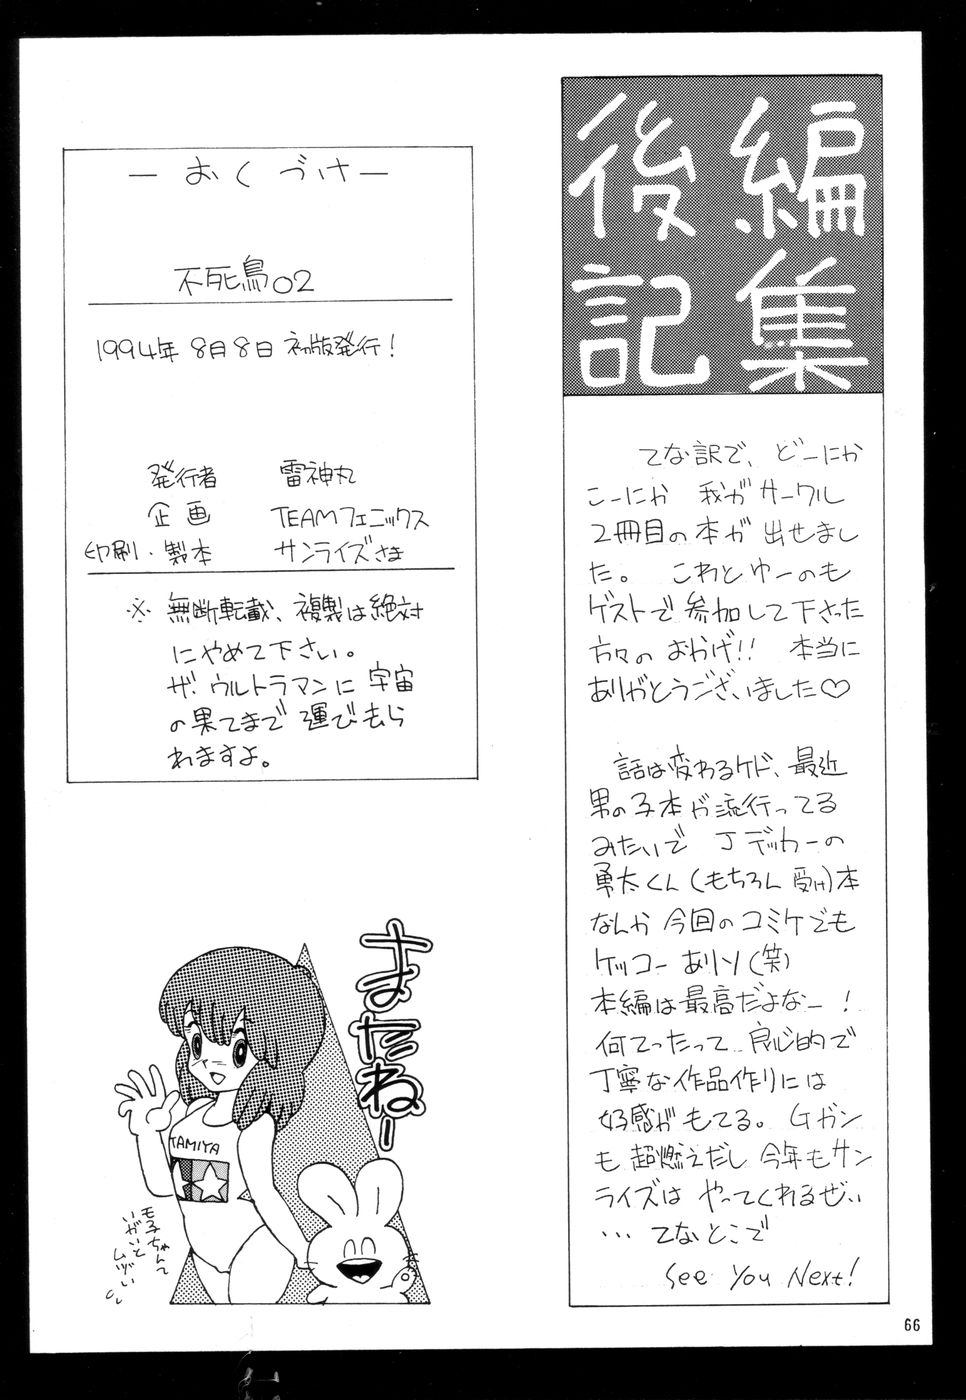 編集
後記
てな訳で、どーにか
こーにか 我がサークル
2冊目の本が出せまし
た。 これとゆーのも
ゲストで参加して下さった
方々のおかげ!! 本当に
ありがとうございました♡
話は変わるケド、最近
男の子本が流行ってる
みたいで Jデッカーの
勇太くん(もちろん 受け)本
なんか今回のコミケでも
ケッコーありソ(笑)
本編は最高だよなー!
何てったって 良心的で
丁寧な作品作りには
好感がもてる。Gガン
も 超燃えだし 今年もサン
ライズは やってくれるぜぃ
… てなとこで
See You Next!
ー おくづけ ー
不死鳥02
1994年 8月8日 初版発行!
発行者 雷神丸
企画 TEAMフェニックス
印刷・製本 サンライズさま
※ 無断転載、複製は絶対
にやめて下さい。
ザ・ウルトラマンに 宇宙
の果てまで 運びもら
れますよ。
またねー
TAMIYA
モ子ちゃんて
いがいと
ムヅい
66